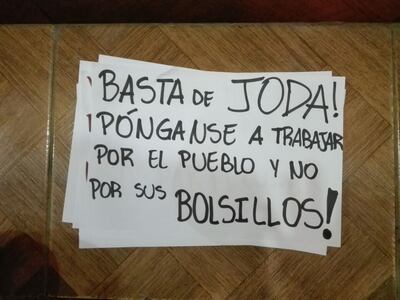 BASTA DE JODA!
PÓNGANSE A TRABAJAR
POR EL PUEBLO Y NO
POR SUS BOLSILLOS!